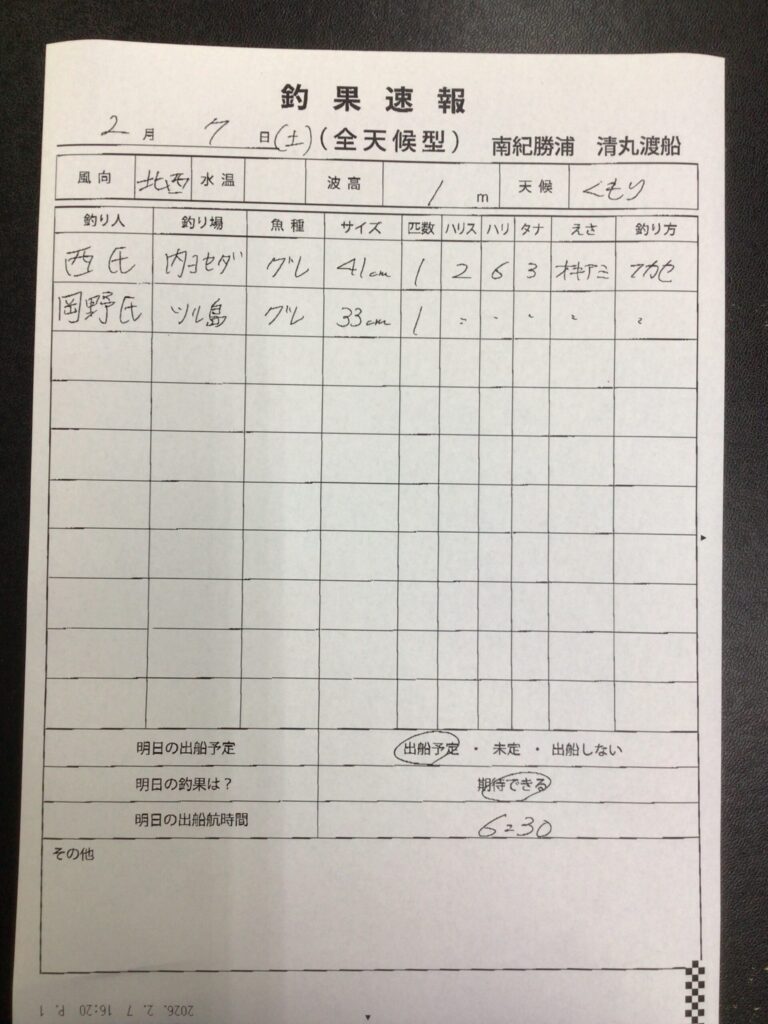 釣果速報
2月7日(土)(全天候型) 南紀勝浦 清丸渡船
風向 北西 水温 波高 1m 天候 くもり
釣り人 釣り場 魚種 サイズ 匹数 ハリス ハリ タナ えさ 釣り方
西氏 内ヨセダ グレ 41cm 1 2 6 3 オキアミ フカセ
岡野氏 ツル島 グレ 33cm 1 〃 〃 〃 〃 〃
明日の出船予定 出船予定・未定・出船しない
明日の釣果は? 期待できる
明日の出船航時間 6:30
その他
2026. 2. 7 16:20 P. 1